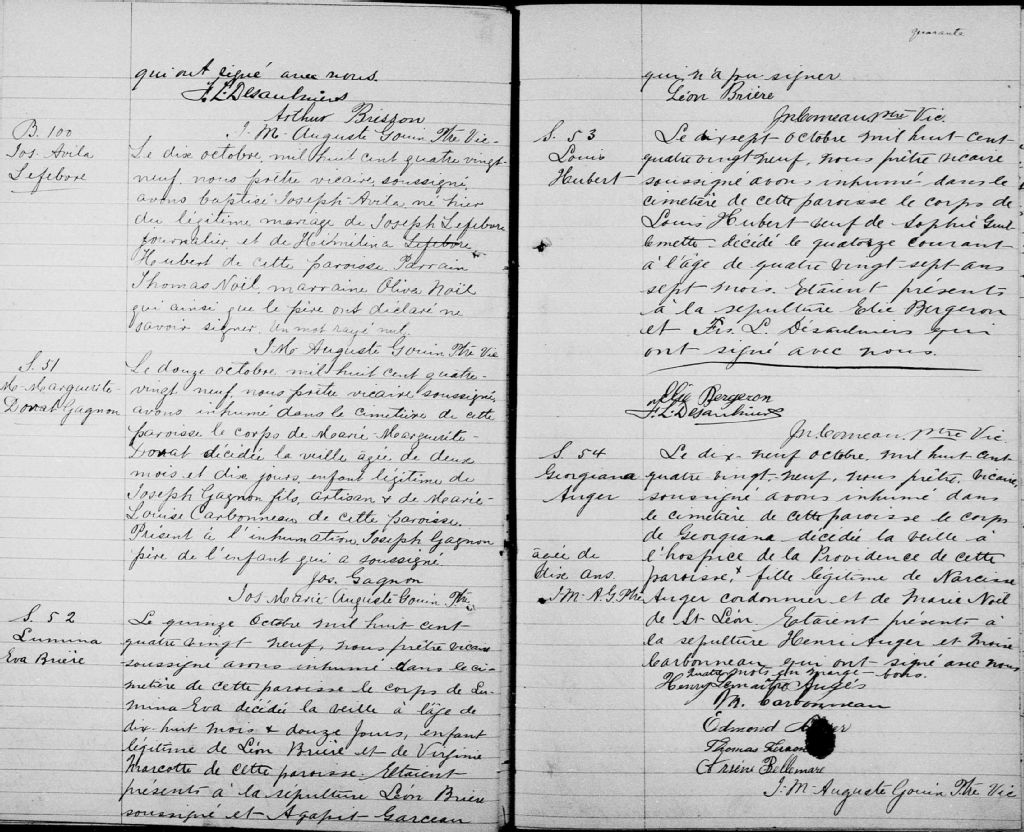 qui ont signé avec nous.
F. L. Desaulniers
Arthur Brisson
J. M. Auguste Gouin Ptre Vic.
B. 100
Jos. Avila
Lefebvre
Le dix octobre, mil huit cent quatre vingt-
neuf, nous prêtre vicaire, soussigné,
avons baptisé Joseph Avila né hier
du légitime mariage de Joseph Lefebvre
journalier, et de Hermilina Lefebvre
Hubert de cette paroisse. Parrain
Thomas Noël, marraine Oliva Noël
qui ainsi que le père ont déclaré ne
savoir signer. Un mot rayé nul.
J. M. Auguste Gouin Ptre Vic
S. 51
M. Marguerite-
Donat Gagnon
Le douze octobre, mil huit cent quatre-
vingt neuf, nous prêtre vicaire soussigné,
avons inhumé dans le cimetière de cette
paroisse le corps de Marie-Marguerite-
Donat décédée la veille âgée de deux
mois et dix jours, enfant légitime de
Joseph Gagnon fils, artisan & de Marie-
Louise Carbonneau de cette paroisse.
Présent à l'inhumation Joseph Gagnon
père de l'enfant qui a soussigné
Jos. Gagnon
Jos Marie-Auguste Gouin Ptre
S. 52
Lumina
Eva Brière
Le quinze Octobre mil huit cent-
quatre vingt neuf, nous prêtre vicaire
soussigné avons inhumé dans le ci-
metière de cette paroisse le corps de Lu-
mina Eva décédée la veille à l'âge de
dix-huit mois & douze jours, enfant
légitime de Léon Brière et de Virginie
Marcotte de cette paroisse. Etaient
présents à la sépulture Léon Brière
soussigné et Agapit Garceau
quarante
qui n'a pu signer
Léon Brière
Jn Comeau, Ptre Vic.
S. 53
Louis
Hubert
Le dix sept octobre mil huit cent-
quatre vingt neuf, nous prêtre vicaire
soussigné avons inhumé dans le
cimetière de cette paroisse le corps de
Louis Hubert veuf de Sophie Guil
lemette décédé le quatorze courant
à l'âge de quatre vingt sept ans
sept mois. Etaient présents
à la sepulture Elie Bergeron
et Frs. L. Désaulniers qui
ont signé avec nous.
Elie Bergeron
F. L. Desaulniers
Jn Comeau, Ptre Vic
S. 54
Georgiana
Auger
Le dix-neuf octobre, mil huit cent
quatre vingt-neuf, nous prêtre, vicaire,
soussigné avons inhumé dans
le cimetière de cette paroisse le corps
de Georgiana décédée la veille à
l'hospice de la Providence de cette
paroisse, x fille légitime de Narcisse
Auger cordonnier et de Marie Noël
de St Léon. Etaient présents à
la sepulture Henri Auger et Moise
Carbonneau qui ont signé avec nous
Quatre mots en marge bons.
âgée de
dix ans.
J. M. A. G. Ptre
Henry Lemaître Augés
M. Carbonneau
Edmond
Thomas
Arsène Bellemare
J. M. Auguste Gouin Ptre Vic